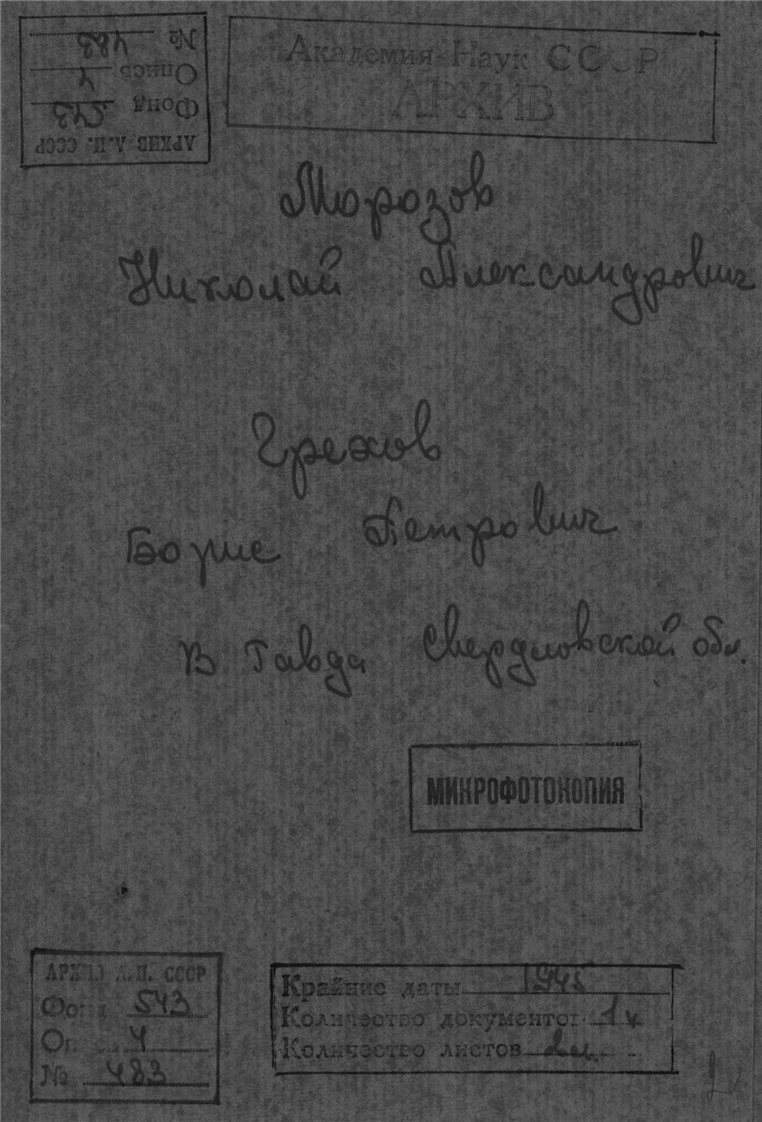 № 483
Опись 4
Фонд 543
АРХИВ А.Н. СССР
Академия Наук СССР
АРХИВ
Морозов
Николай Александрович
Грехов
Борис Петрович
В Тавда Свердловской обл.
МИКРОФОТОКОПИЯ
АРХИВ А.Н. СССР
Фонд 543
Оп. 4
№ 483
Крайние даты 1945
Количество документов 1
Количество листов